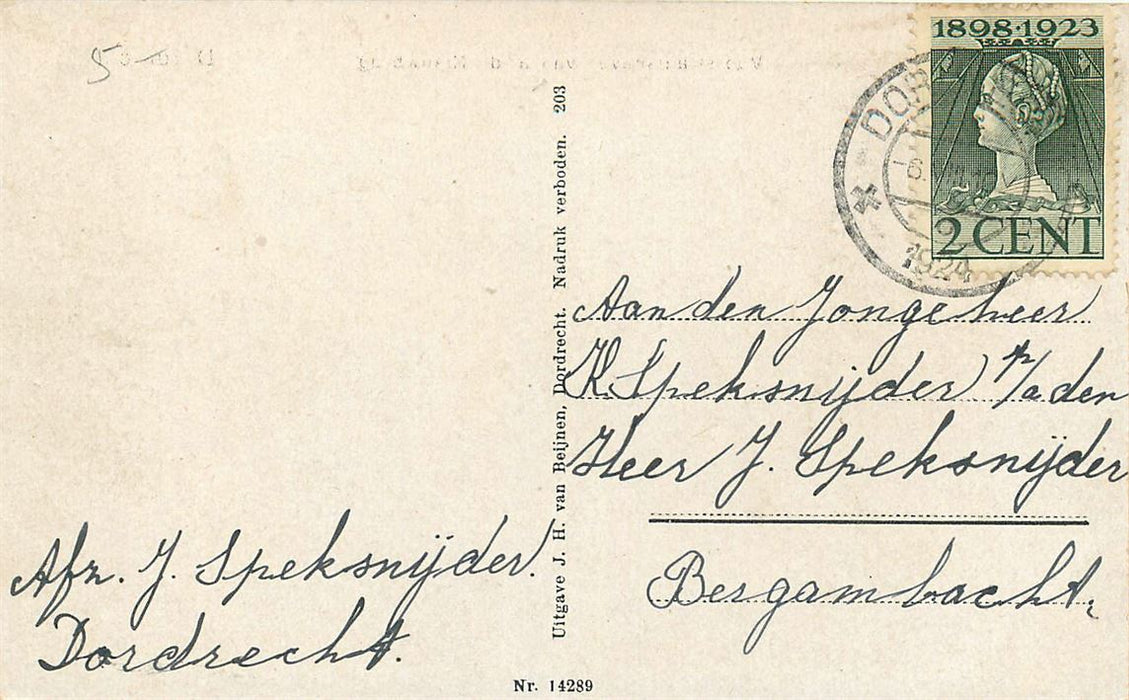 5
1898·1923
2 CENT
DOR
1924
Aan den Jongeheer
K. Speksnijder p/a den
Heer J. Speksnijder
Bergambacht,
Afz. J. Speksnijder.
Dordrecht.
Uitgave J. H. van Beijnen, Dordrecht. Nadruk verboden. 203
Nr. 14289